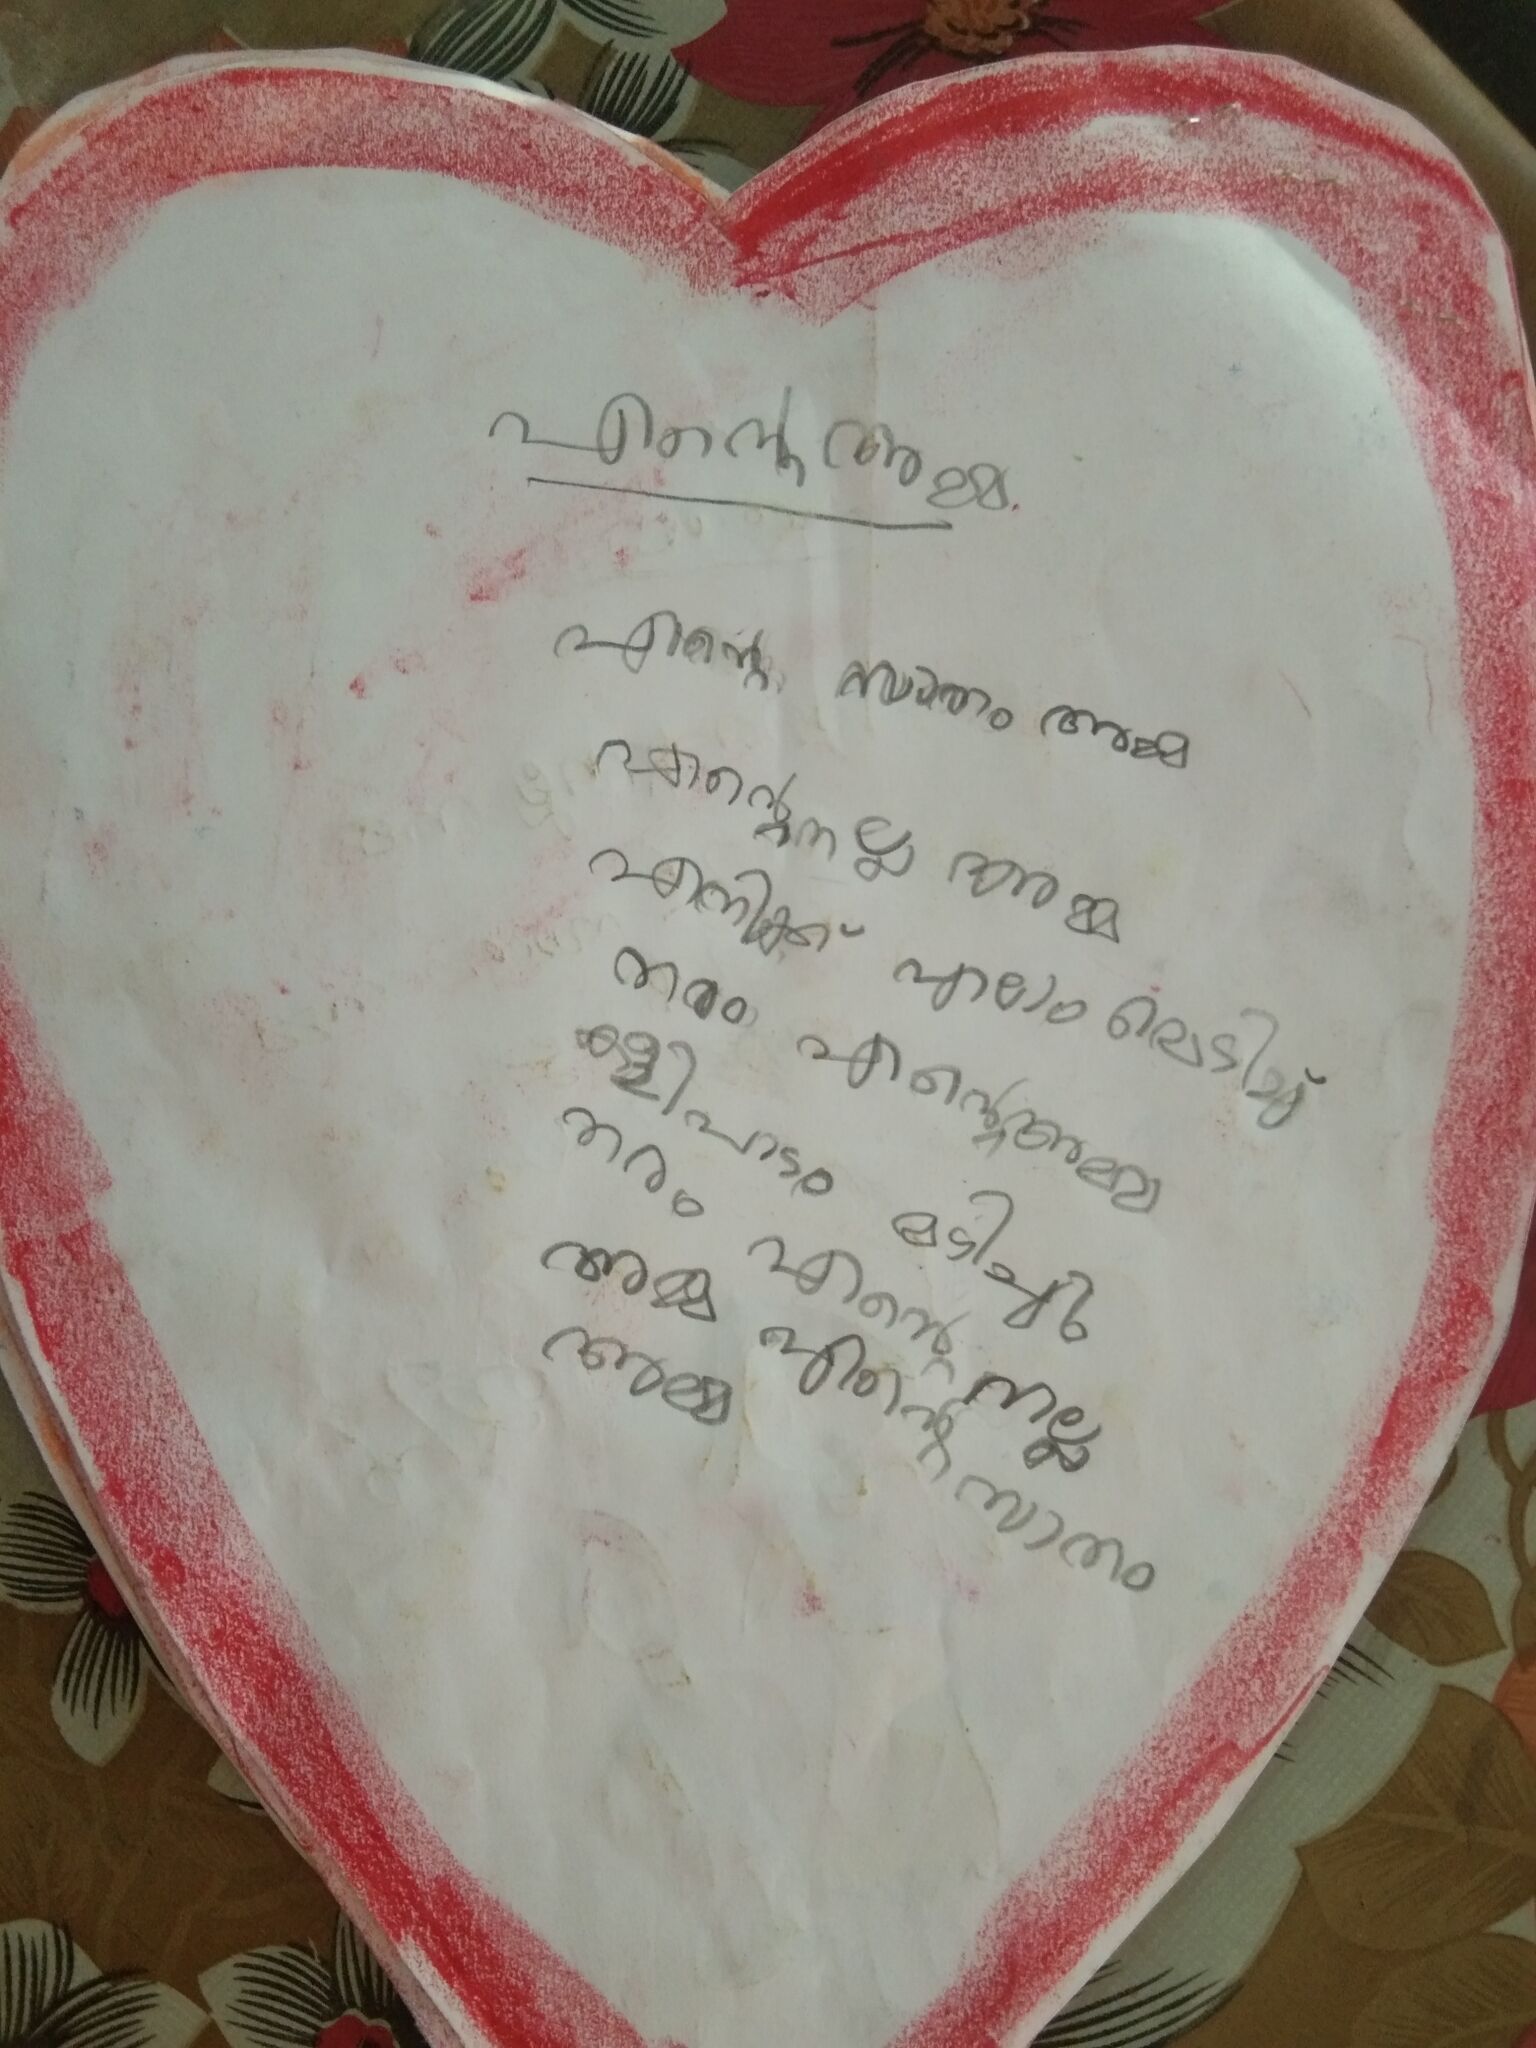 എന്റെ അമ്മ
എന്റെ സ്വന്തം അമ്മ
എന്റെ നല്ല അമ്മ
എനിക്ക് എലാം മെടിച്ച്
തരം എന്റെ അമ്മ
കളിപാടം മടിച്ചു
തരം എന്റെ നല്ല
അമ്മ എന്റെ സ്വന്തം
അമ്മ